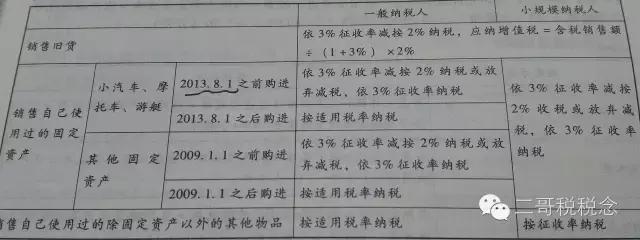 一般纳税人
小规模纳税人
销售旧货
依3%征收率减按2%纳税，应纳增值税=含税销售额
÷（1+3%）×2%
销售自己使
用过的固定
资产
小汽车、摩
托车、游艇
2013.8.1之前购进
依3%征收率减按2%纳税或放
弃减税，依3%征收率纳税
2013.8.1之后购进
按适用税率纳税
其他固定
资产
2009.1.1之前购进
依3%征收率减按2%纳税或放
弃减税，依3%征收率纳税
2009.1.1之后购进
按适用税率纳税
依3%征收率减按
2%收税或放弃减
税，依3%征收率
纳税
销售自己使用过的除固定资产以外的其他物品
按适用税率纳税
按征收率纳税
二哥税税念